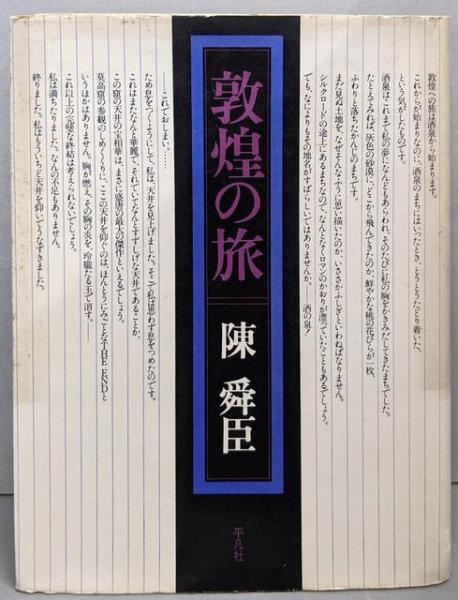 敦煌の旅
陳 舜臣
平凡社
敦煌への旅は酒泉から始まります。
これからが始まりなのに、酒泉のまちにはいったとき、とうとうたどり着いた、
という気がしたものです。
酒泉はこれまで私の夢になんどもあらわれ、そのたびに私の胸をかきみだしてきたまちでした。
たとえてみれば、灰色の砂漠に、どこから飛んできたのか、鮮やかな桃の花びらが一枚、
ふわりと落ちたかんじのまちです。
まだ見ぬ土地を、なぜそんなふうに思い描いたのか、いささかふしぎといわねばなりません。
シルクロードの途上にあるまちなので、なんとなくロマンのかおりが漂っていたこともあるでしょう。
でも、なによりもその地名がすばらしいではありませんか。――酒の泉！
――これでおしまい。……
ため息をつくようにして、私は、天井を見上げました。そこで私は思わず息をつめたのです。
これはまたなんと華麗で、それでいてなんとすずしげな天井であることか。
この窟の天井の宝相華は、まさに盛唐の最大の傑作といえるでしょう。
莫高窟の参観のしめくくりに、ここの天井を仰ぐのは、ほんとうにみごとなTHE ENDと
いうほかはありません。胸が燃え、その胸の炎を、玲瓏たる玉で消す。――
これ以上の完璧な終結は考えられないでしょう。
私は満ちたりました。なんの不足もありません。
終りました。私はもういちど天井を仰いでうなずきました。